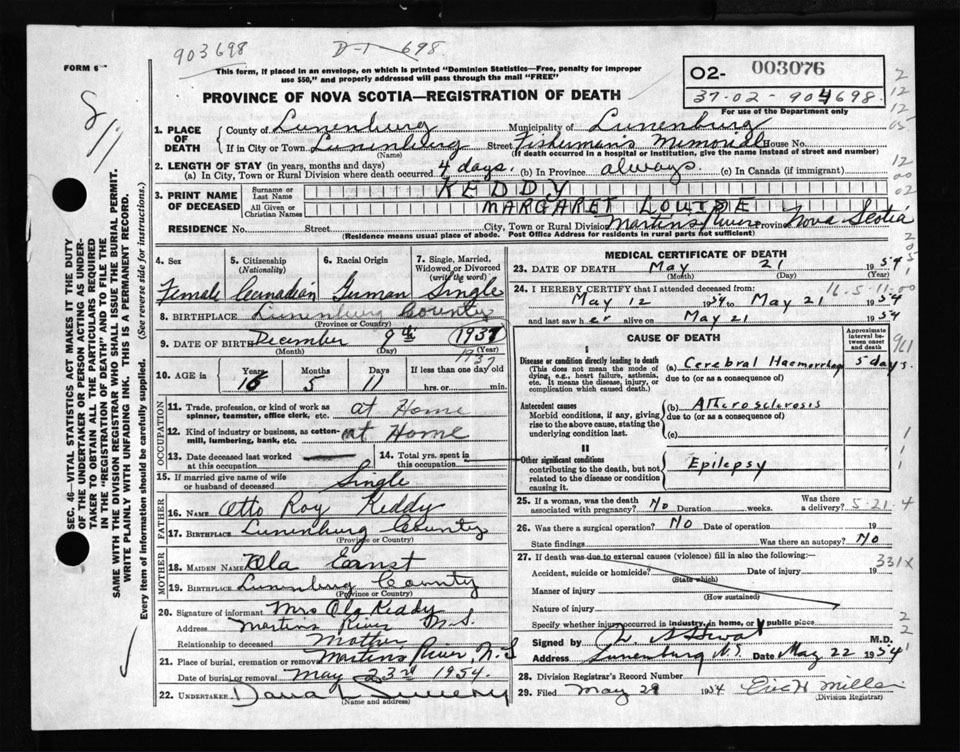 903698
D-1-698
FORM 6
This form, if placed in an envelope, on which is printed "Dominion Statistics—Free, penalty for improper use $50," and properly addressed will pass through the mail "FREE"
02- 003076
37-02-904698
For use of the Department only
PROVINCE OF NOVA SCOTIA—REGISTRATION OF DEATH
8/11
1. PLACE OF DEATH { County of Lunenburg Municipality of Lunenburg
If in City or Town Lunenburg Street Fisherman's Memorial House No.
(Name) (If death occurred in a hospital or institution, give the name instead of street and number)
2. LENGTH OF STAY (in years, months and days)
(a) In City, Town or Rural Division where death occurred 4 days. (b) In Province always. (c) In Canada (if immigrant)
3. PRINT NAME OF DECEASED { Surname or Last Name KEDDY
All Given or Christian Names MARGARET LOUISE
RESIDENCE No. Street City, Town or Rural Division Martins River Province Nova Scotia
(Residence means usual place of abode. Post Office Address for residents in rural parts not sufficient)
4. Sex Female
5. Citizenship (Nationality) Canadian
6. Racial Origin German
7. Single, Married, Widowed or Divorced (write the word) Single
8. BIRTHPLACE Lunenburg County
(Province or Country)
9. DATE OF BIRTH December 9th 1937
(Month) (Day) (Year)
1937
10. AGE in Years 16 Months 5 Days 11 If less than one day old hrs. or min.
OCCUPATION
11. Trade, profession, or kind of work as spinner, teamster, office clerk, etc. at Home
12. Kind of industry or business, as cotton-mill, lumbering, bank, etc. at Home
13. Date deceased last worked at this occupation
14. Total yrs. spent in this occupation
15. If married give name of wife or husband of deceased Single
FATHER
16. NAME Otto Roy Keddy
17. BIRTHPLACE Lunenburg County
(Province or Country)
MOTHER
18. MAIDEN NAME Ola Ernst
19. BIRTHPLACE Lunenburg County
(Province or Country)
20. Signature of informant Mrs Ola Keddy
Address Martins River N.S.
Relationship to deceased Mother
21. Place of burial, cremation or removal Martins River, N.S
Date of burial or removal May 23rd 1954.
22. UNDERTAKER Dana L Sweeny
(Name and address)
MEDICAL CERTIFICATE OF DEATH
23. DATE OF DEATH May 21 1954
(Month) (Day) (Year)
24. I HEREBY CERTIFY that I attended deceased from: 16-5-11-00
May 12 1954 to May 21 1954
and last saw her alive on May 21 1954
CAUSE OF DEATH
Approximate interval between onset and death
I
Disease or condition directly leading to death
(This does not mean the mode of dying, e.g., heart failure, asthenia, etc. It means the disease, injury, or complication which caused death.)
(a) Cerebral Haemorrhage 5 days.
due to (or as a consequence of)
Antecedent causes
Morbid conditions, if any, giving rise to the above cause, stating the underlying condition last.
(b) Atherosclerosis
due to (or as a consequence of)
(c)
II
Other significant conditions contributing to the death, but not related to the disease or condition causing it.
Epilepsy
25. If a woman, was the death associated with pregnancy? No Duration weeks. Was there a delivery? 5-21-4
26. Was there a surgical operation? No Date of operation 19
State findings Was there an autopsy? No
27. If death was due to external causes (violence) fill in also the following:— 331X
Accident, suicide or homicide? Date of injury 19
(State which)
Manner of injury
(How sustained)
Nature of injury
Specify whether injury occurred in industry, in home, or public place
Signed by M.D.
Address Lunenburg N.S. Date May 22 1954
28. Division Registrar's Record Number
29. Filed May 29 1954 Eric H Miller
(Division Registrar)
SEC. 46—VITAL STATISTICS ACT MAKES IT THE DUTY OF THE UNDERTAKER OR PERSON ACTING AS UNDERTAKER TO OBTAIN ALL THE PARTICULARS REQUIRED IN THE "REGISTRATION OF DEATH" AND TO FILE THE SAME WITH THE DIVISION REGISTRAR WHO SHALL ISSUE THE BURIAL PERMIT.
WRITE PLAINLY WITH UNFADING INK. THIS IS A PERMANENT RECORD.
Every item of information should be carefully supplied. (See reverse side for instructions.)